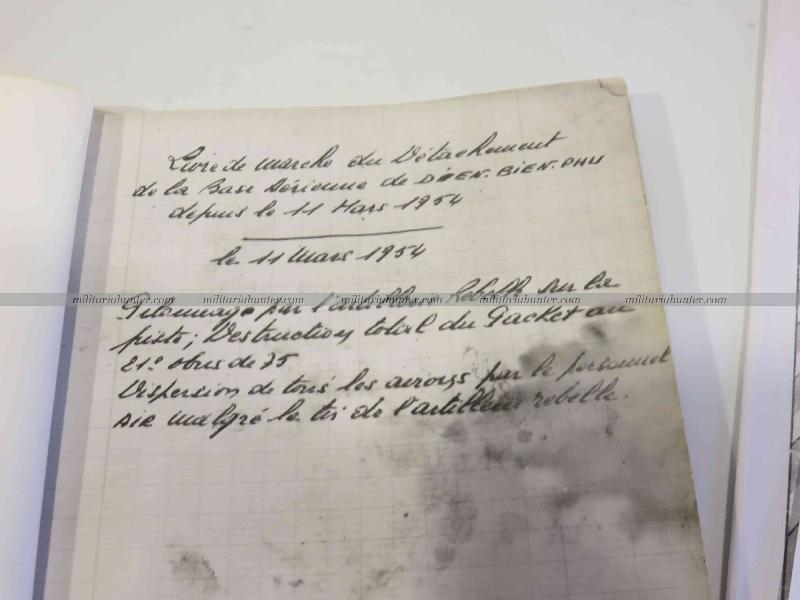 Livre de marche du Détachement
de la Base Aérienne de DIEN.BIEN.PHU
depuis le 11 Mars 1954
le 11 Mars 1954
militariahunter.com militariahunter.com militariahunter.com militariahunter.com
Pilonnage par l'artillerie Rebelle sur la
piste; Destruction total du Packet au
21e obus de 75
Dispersion de tous les avions par le personnel
AIR malgré le tir de l'artillerie rebelle.